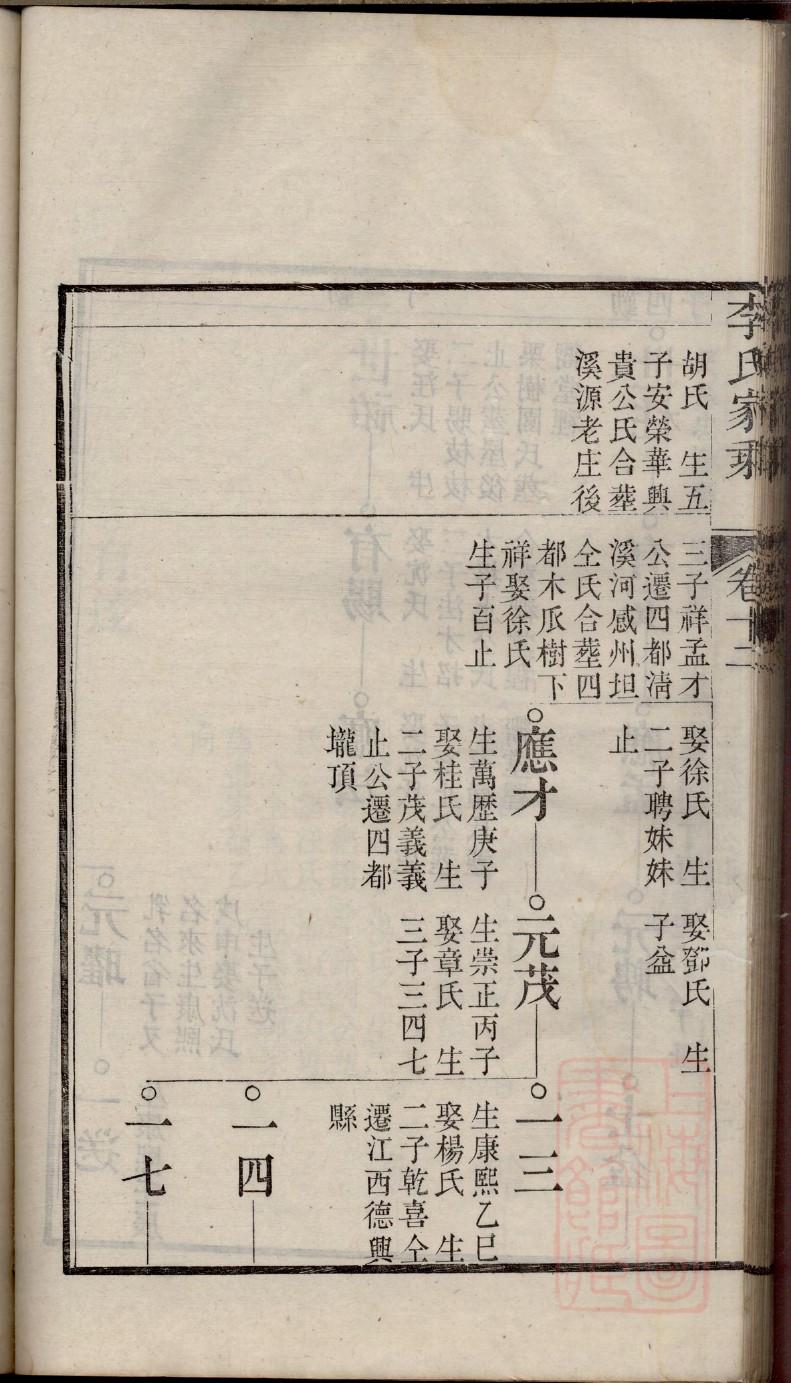 李氏家乘
卷十二
胡氏 生五
子安榮華興
貴公氏合塟
溪源老庄後
三子祥孟才
公遷四都淸
溪河感州坦
仝氏合塟四
都木瓜樹下
祥娶徐氏
生子百止
娶徐氏 生
二子聘妹妹
止
娶鄧氏 生
子益
應才
生萬歷庚子
娶桂氏 生
二子茂義義
止公遷四都
壠頂
元茂
生崇正丙子
娶章氏 生
三子三四七
一三
生康熙乙巳
娶楊氏 生
二子乾喜仝
遷江西德興
縣
一四
一七